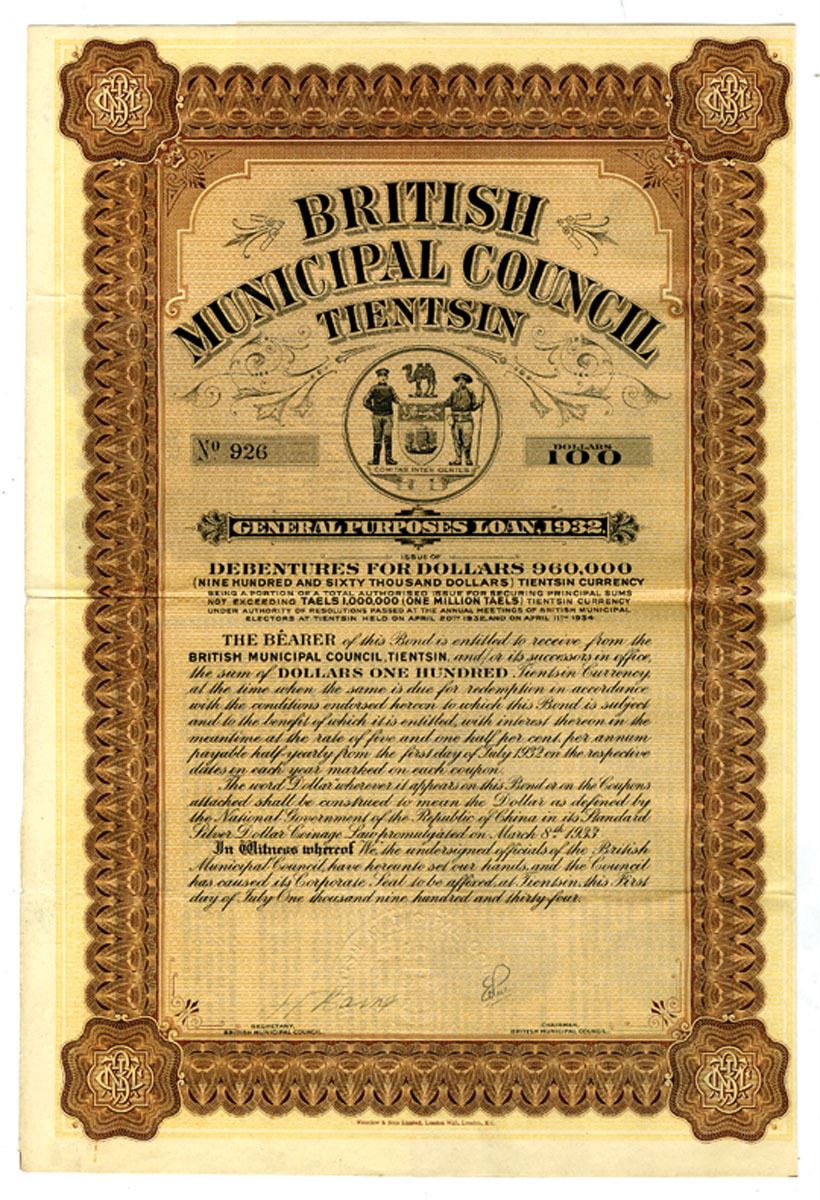 BRITISH
MUNICIPAL COUNCIL
TIENTSIN
No 926
DOLLARS
100
COMITAS INTER GENTES
GENERAL PURPOSES LOAN, 1932
ISSUE OF
DEBENTURES FOR DOLLARS 960,000
(NINE HUNDRED AND SIXTY THOUSAND DOLLARS) TIENTSIN CURRENCY
BEING A PORTION OF A TOTAL AUTHORISED ISSUE FOR SECURING PRINCIPAL SUMS
NOT EXCEEDING TAELS 1,000,000 (ONE MILLION TAELS) TIENTSIN CURRENCY
UNDER AUTHORITY OF RESOLUTIONS PASSED AT THE ANNUAL MEETINGS OF BRITISH MUNICIPAL
ELECTORS AT TIENTSIN HELD ON APRIL 20TH 1932, AND ON APRIL 11TH 1934
THE BEARER of this Bond is entitled to receive from the
BRITISH MUNICIPAL COUNCIL, TIENTSIN, and/or its successors in office,
the sum of DOLLARS ONE HUNDRED Tientsin Currency
at the time when the same is due for redemption in accordance
with the conditions endorsed hereon to which this Bond is subject
and to the benefit of which it is entitled, with interest thereon in the
meantime at the rate of five and one half per cent. per annum
payable half-yearly from the first day of July 1932 on the respective
dates in each year marked on each coupon.
The word Dollar wherever it appears on this Bond or on the Coupons
attached shall be construed to mean the Dollar as defined by
the National Government of the Republic of China in its Standard
Silver Dollar Coinage Law promulgated on March 8th 1933
In Witness whereof We, the undersigned officials of the British
Municipal Council, have hereunto set our hands, and the Council
has caused its Corporate Seal to be affixed, at Tientsin, this First
day of July One thousand nine hundred and thirty-four.
SECRETARY,
BRITISH MUNICIPAL COUNCIL.
CHAIRMAN,
BRITISH MUNICIPAL COUNCIL.
Waterlow & Sons Limited, London Wall, London, E.C.